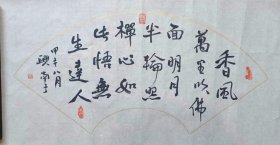 香風
萬里吹佛
面明月
半輪照
禪心如
此悟無
生達人
甲午八月